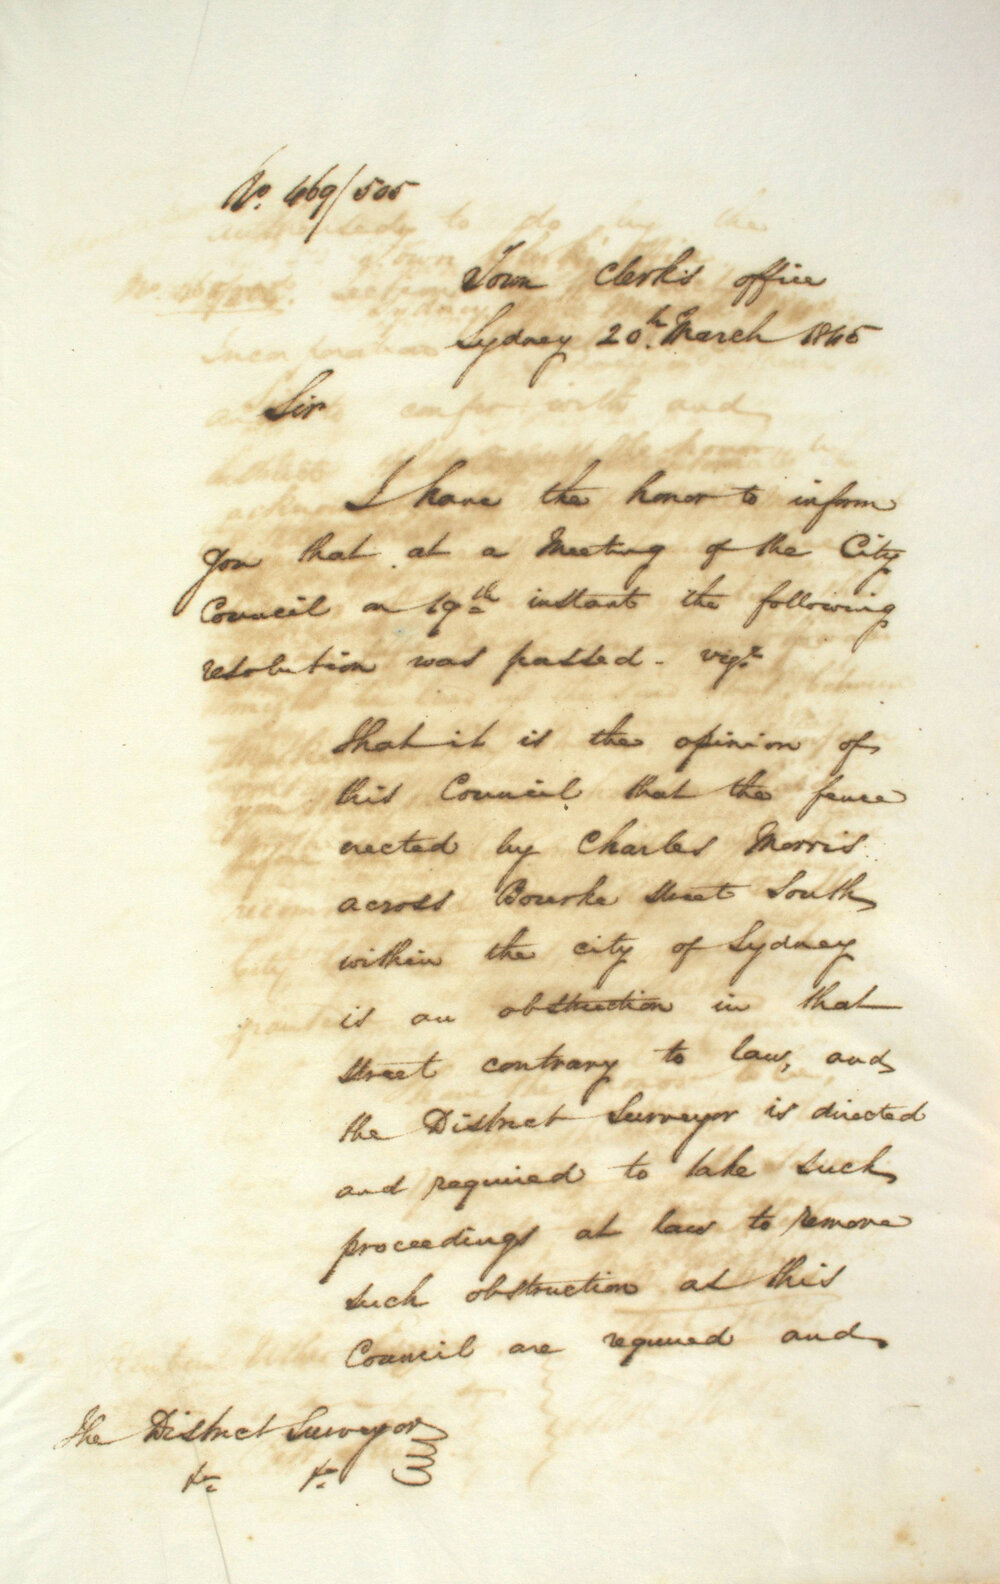 No. 469/505
Town Clerk's office
Sydney 20th. March 1845
Sir
I have the honor to inform
you that at a Meeting of the City
Council on 19th instant the following
resolution was passed - vizt
That it is the opinion of
this Council that the fence
erected by Charles Morris
across Bourke street South
within the city of Sydney
is an obstruction in that
street contrary to law, and
the District Surveyor is directed
and required to take such
proceedings at law to remove
such obstruction as this
Council are required and
The District Surveyor
&c &c